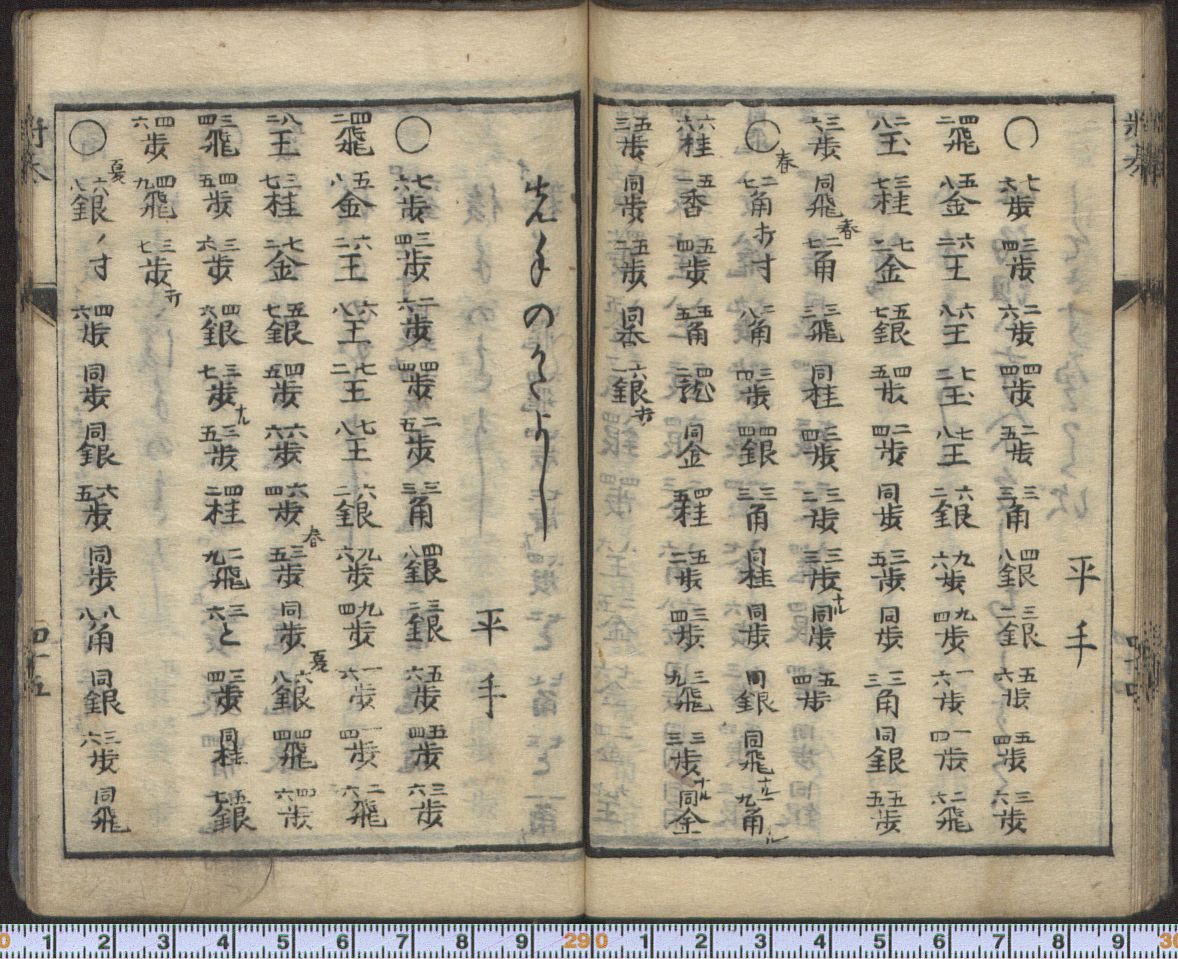 平手
○七六歩 三四歩 二六歩 四四歩 二五歩 三三角 四八銀 三二銀 五六歩 五四歩 三六歩
四二飛 五八金 六二王 六八王 七二玉 七八王 六二銀 九六歩 九四歩 一六歩 一四歩 二六飛
八二玉 三七桂 七二金 五七銀 四五歩 二四歩 同歩 三五歩 同歩 三三角 同銀 五五歩
三六歩 同飛 春 二七角 三三飛 同桂 三四歩 三二歩 三三歩ナル 同歩 五四歩
○春 二七角打寸 二八角 三四歩 四四銀 三三角 同桂 同歩 同銀 同飛ナル 一九角ナル
六六桂 五一香 五四歩 五五角 二二龍 同金 四五桂 五二歩 三四歩 三九飛 三三歩ナル 同金
五三歩 同歩 五二歩 同香 六一銀打
先手のかたよし
平手
○七六歩 三四歩 二六歩 四四歩 二五歩 三三角 四八銀 三二銀 五六歩 五四歩 三六歩
四二飛 五八金 六二王 六八王 七二王 七八王 六二銀 九六歩 九四歩 一六歩 一四歩 二六飛
八二王 三七桂 七二金 五七銀 四五歩 六六歩 六四歩 春 三五歩 同歩 夏 六八銀 四四飛 四六歩
三四飛 四五歩 三六歩 四六銀 三七歩ナル 三五歩 四二桂 二九飛 三六と 三四歩 同桂 五七銀
四六歩 四九飛 三七歩打
○夏 六八銀ノ寸 四六歩 同歩 同銀 六五歩 同歩 八八角 同銀 三六歩 同飛
四十五